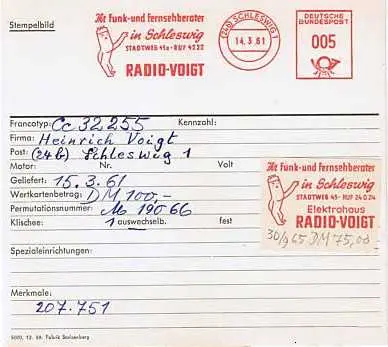 Stempelbild
Ihr Funk-und Fernsehberater
in Schleswig
STADTWEG 45a · RUF 4222
RADIO-VOIGT
(24b) SCHLESWIG 1
14.3.61
DEUTSCHE
BUNDESPOST
005
Francotyp: Cc 32255 Kennzahl:
Firma: Heinrich Voigt
Post: (24b) Schleswig 1
Motor: Nr. Volt
Geliefert: 15.3.61
Wertkartenbetrag: DM 100,-
Permutationsnummer: Mo 190 66
Klischee: 1 auswechselb. fest
Ihr Funk-und Fernsehberater
in Schleswig
STADTWEG 45 · RUF 24024
Elektrohaus
RADIO-VOIGT
30/9 65 DM 75,00
Spezialeinrichtungen:
Merkmale:
207.751
5000, 12. 59. Fabrik Stolzenberg